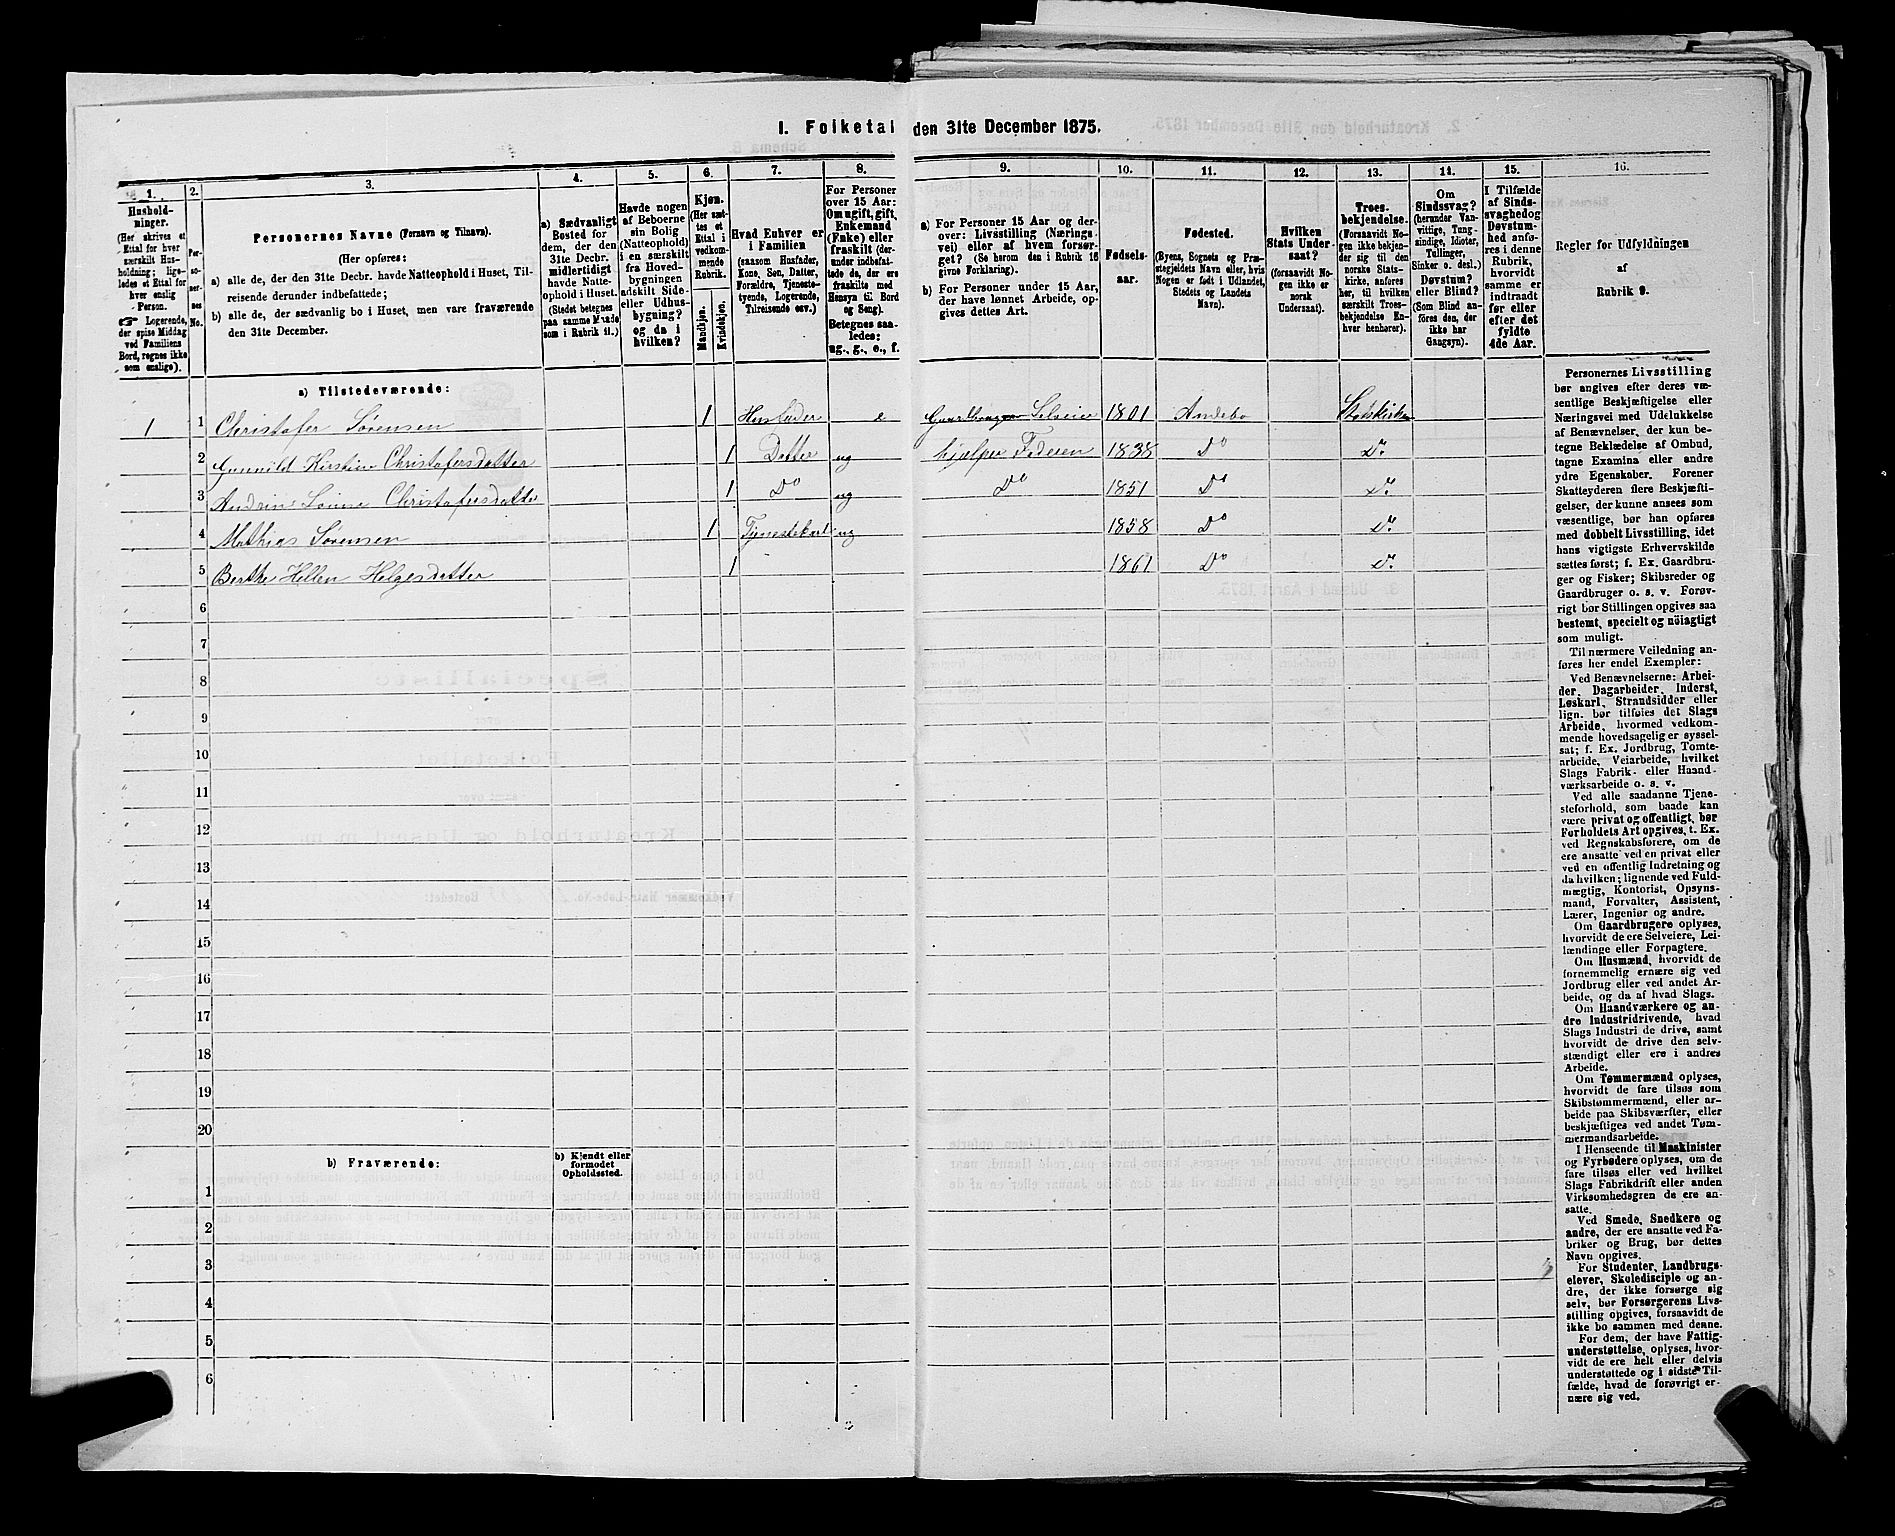 1. Folketal den 31te December 1875.
1.
Hushold-
ninger.
(Her skrives et
Ettal for hver
særskilt Hus-
holdning; lige-
ledes et Ettal for
hver enslig
Person.
☞ Logerende,
der spise Middag
ved Familiens
Bord, regnes ikke
som enslige).
2.
Per-
so-
ner-
nes
No.
3.
Personernes Navne (Fornavn og Tilnavn).
(Her opføres:
a) alle de, der den 31te Decbr. havde Natteophold i Huset, Til-
reisende derunder indbefattede;
b) alle de, der sædvanlig bo i Huset, men vare fraværende
den 31te December.
4.
a) Sædvanligt
Bosted for
dem, der den
31te Decbr.
midlertidigt
havde Natte-
ophold i Huset.
(Stedet betegnes
paa samme Maade
som i Rubrik 11.)
5.
Havde nogen
af Beboerne
sin Bolig
(Natteophold)
i en særskilt
fra Hoved-
bygningen
adskilt Side-
eller Udhus-
bygning?
og da i
hvilken?
6.
Kjøn.
(Her sæt-
tes et
Ettal i
vedkom-
mende
Rubrik.
Mandkjøn.
Kvindekjøn.
7.
Hvad Enhver er
i Familien
(saasom Husfader,
Kone, Søn, Datter,
Forældre, Tjeneste-
tyende, Logerende,
Tilreisende osv.)
8.
For Personer
over 15 Aar:
Om ugift, gift,
Enkemand
(Enke) eller
fraskilt (der-
under indbefat-
tede de, der ere
fraskilte med
Hensyn til Bord
og Seng).
Betegnes saa-
ledes:
ug., g., e., f.
9.
a) For Personer 15 Aar og der-
over: Livsstilling (Nærings-
vei) eller af hvem forsør-
get? (Se herom den i Rubrik 16
givne Forklaring).
b) For Personer under 15 Aar,
der have lønnet Arbeide, op-
gives dettes Art.
10.
Fødsels-
aar.
11.
Fødested.
(Byens, Sognets og Præ-
stegjeldets Navn eller, hvis
Nogen er født i Udlandet,
Stedets og Landets
Navn).
12.
Hvilken
Stats Under-
saat?
(forsaavidt No-
gen ikke er
norsk
Undersaat).
13.
Troes-
bekjendelse.
(Forsaavidt No-
gen ikke bekjen-
der sig til den
norske Stats-
kirke, anføres
her, til hvilken
særskilt Troes-
bekjendelse En-
hver henhører).
14.
Om
Sindssvag?
(herunder Van-
vittige, Tung-
sindige, Idioter,
Tullinger,
Sinker o. desl.)
Døvstum?
eller Blind?
(Som Blind an-
føres den, der
ikke har
Gangsyn).
15.
I Tilfælde
af Sinds-
svaghed og
Døvstum-
hed anfø-
res i denne
Rubrik,
hvorvidt
samme er
indtraadt
før eller
efter det
fyldte
4de Aar.
16.
Regler for Udfyldningen
af
Rubrik 9.
a) Tilstedeværende:
1 1 Christofer Sørensen 1 Husfader e Gaardbruger Selveier 1801 Andebo Statskirken
2 Gunnild Kirstine Christofersdatter 1 Datter ug hjelper Faderen 1838 Do Do
3 Andrine Lovise Christofersdatter 1 Do ug Do 1851 Do Do
4 Mathias Sørensen 1 Tjenestekarl ug 1858 Do Do
5 Berthe Hellen Helgesdatter 1 1861 Do Do
6
7
8
9
10
11
12
13
14
15
16
17
18
19
20
b) Fraværende: b) Kjendt eller
formodet
Opholdssted.
1
2
3
4
5
6
Personernes Livsstilling
bør angives efter deres væ-
sentlige Beskjæftigelse eller
Næringsvei med Udelukkelse
af Benævnelser, der kun be-
tegne Beklædelse af Ombud,
tagne Examina eller andre
ydre Egenskaber. Forener
Skatteyderen flere Beskjæfti-
gelser, der kunne ansees som
væsentlige, bør han opføres
med dobbelt Livsstilling, idet
hans vigtigste Erhvervskilde
sættes først; f. Ex. Gaardbru-
ger og Fisker; Skibsreder og
Gaardbruger o. s. v. Forøv-
rigt bør Stillingen opgives saa
bestemt, specielt og nøiagtigt
som muligt.
Til nærmere Veiledning an-
føres her endel Exempler:
Ved Benævnelserne: Arbei-
der, Dagarbeider, Inderst,
Løskarl, Strandsidder eller
lign. bør tilføies det Slags
Arbeide, hvormed vedkom-
mende hovedsagelig er syssel-
sat; f. Ex. Jordbrug, Tomte-
arbeide, Veiarbeide, hvilket
Slags Fabrik- eller Haand-
værksarbeide o. s. v.
Ved alle saadanne Tjene-
steforhold, som baade kan
være privat og offentligt, bør
Forholdets Art opgives, t. Ex.
ved Regnskabsførere, om de
ere ansatte ved en privat eller
ved en offentlig Indretning og
da hvilken; lignende ved Fuld-
mægtig, Kontorist, Opsyns-
mand, Forvalter, Assistent,
Lærer, Ingeniør og andre.
Om Gaardbrugere oplyses,
hvorvidt de ere Selveiere, Lei-
lændinge eller Forpagtere.
Om Husmænd, hvorvidt de
fornemmelig ernære sig ved
Jordbrug eller ved andet Ar-
beide, og da af hvad Slags.
Om Haandværkere og an-
dre Industridrivende, hvad
Slags Industri de drive, samt
hvorvidt de drive den selv-
stændigt eller ere i andres
Arbeide.
Om Tømmermænd oplyses,
hvorvidt de fare tilsøs som
Skibstømmermænd, eller ar-
beide paa Skibsværfter, eller
beskjæftiges ved andet Tøm-
mermandsarbeide.
I Henseende til Maskinister
og Fyrbødere oplyses, om de
fare tilsøs eller ved hvilket
Slags Fabrikdrift eller anden
Virksomhedsgren de ere an-
satte.
Ved Smede, Snedkere og
andre, der ere ansatte ved Fa-
briker og Brug, bør dettes
Navn opgives.
For Studenter, Landbrugs-
elever, Skoledisciple og an-
dre, der ikke forsørge sig
selv, bør Forsørgerens Livs-
stilling opgives, forsaavidt de
ikke bo sammen med denne.
For dem, der have Fattig-
understøttelse, oplyses, hvor-
vidt de ere helt eller delvis
understøttede og i sidste Til-
fælde, hvad de forøvrigt er-
nære sig ved.